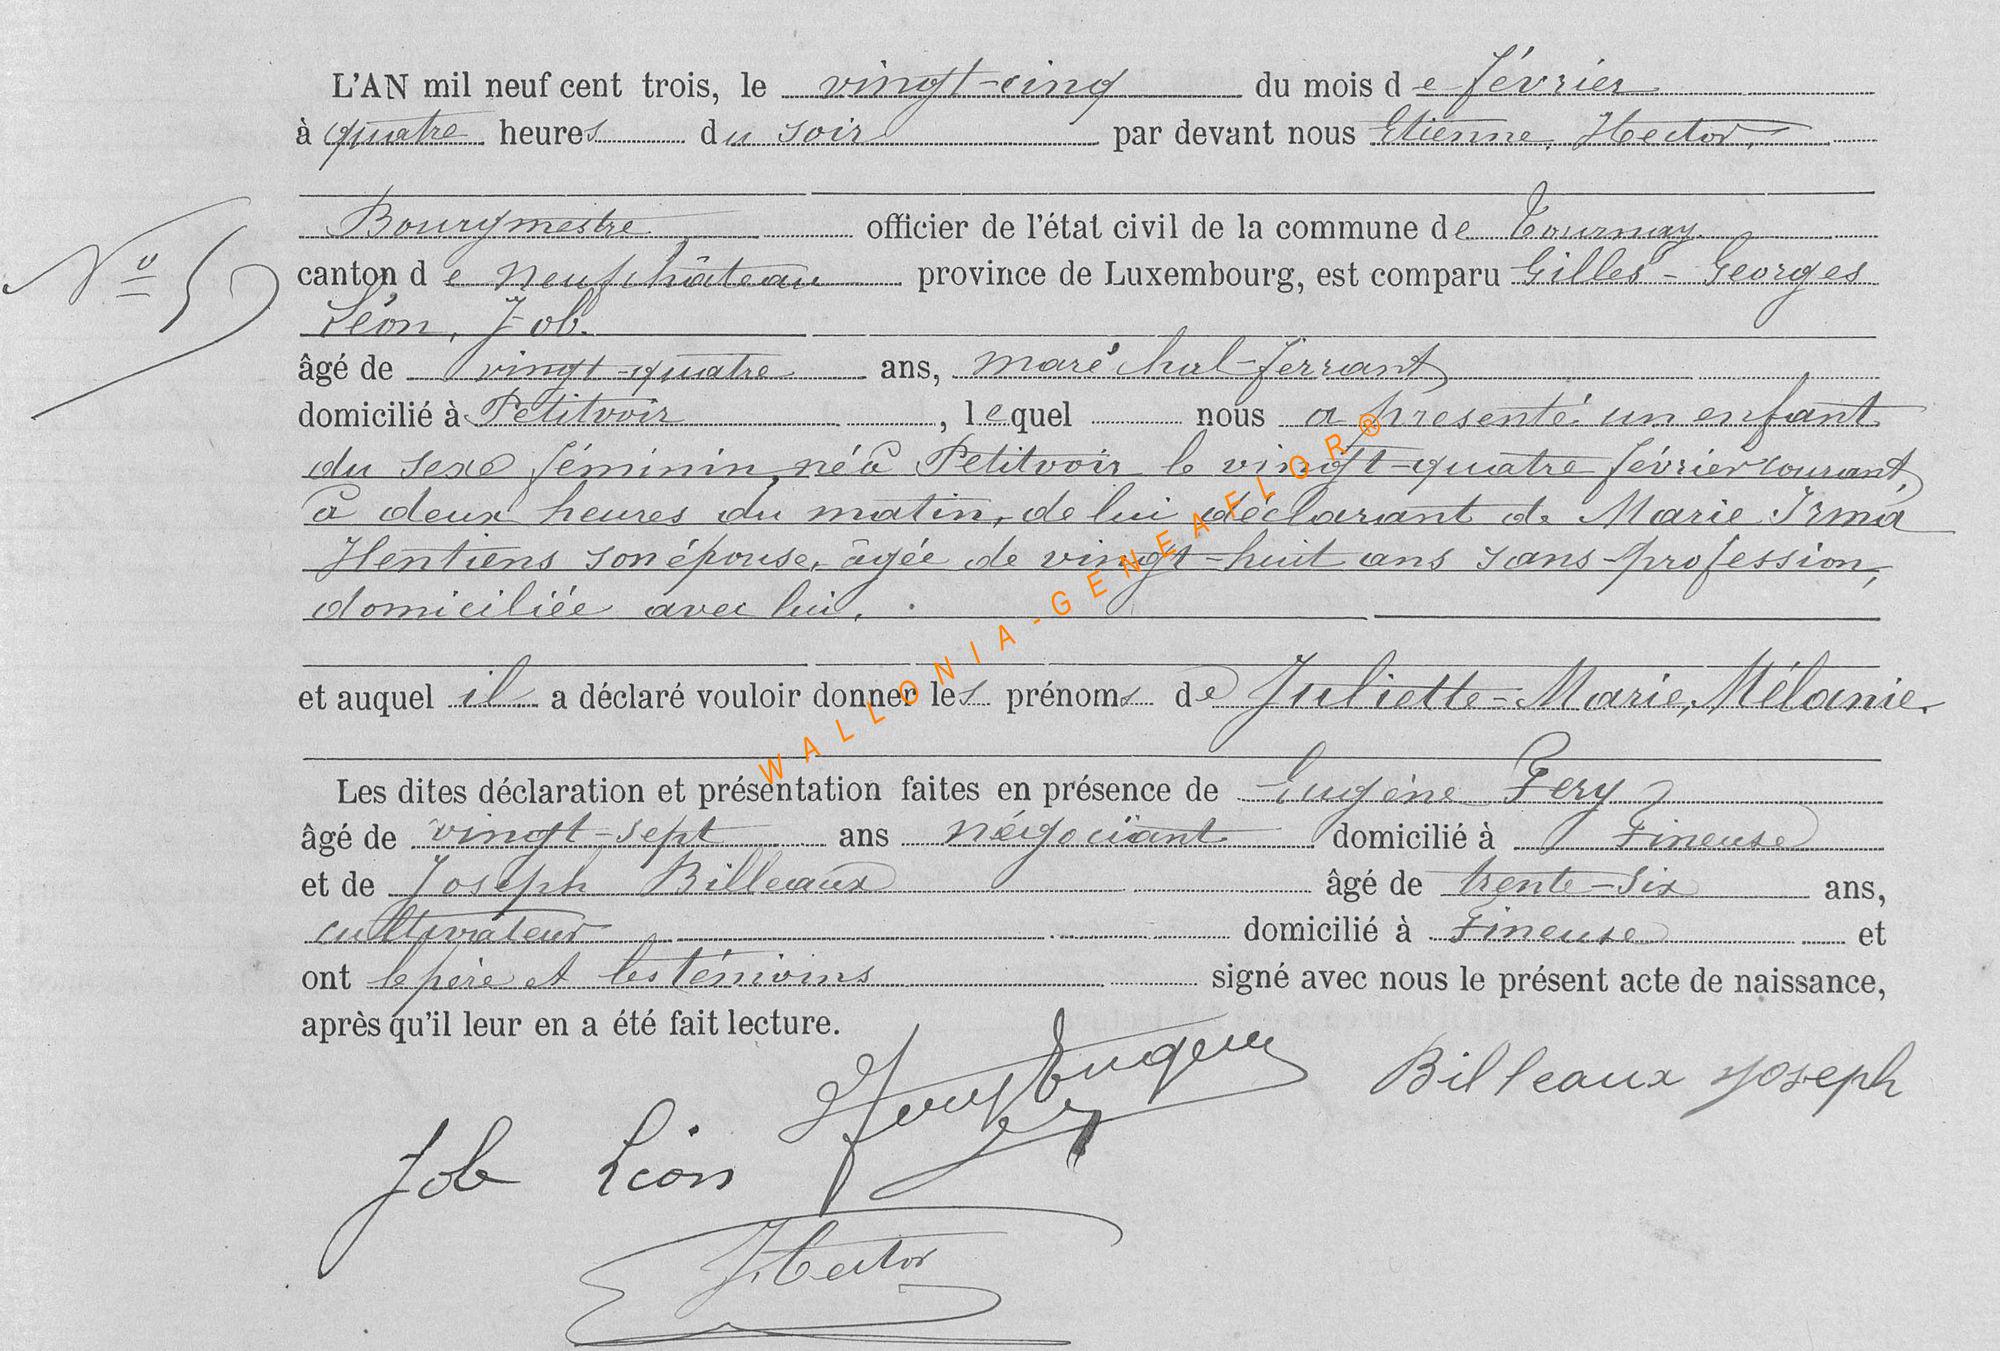 L'AN mil neuf cent trois, le vingt-cinq du mois de février
à quatre heures du soir par devant nous Etienne, Hector,
Bourgmestre officier de l'état civil de la commune de Tournay
canton de Neufchâteau province de Luxembourg, est comparu Gilles-Georges
Nº 5
Léon, Job.
âgé de vingt-quatre ans, maréchal-ferrant
domicilié à Petitvoir, lequel nous a présenté un enfant
du sexe féminin, né à Petitvoir le vingt-quatre février courant,
à deux heures du matin, de lui déclarant de Marie Irma
Hentiens son épouse, âgée de vingt-huit ans sans profession,
domiciliée avec lui.
et auquel il a déclaré vouloir donner les prénoms de Juliette-Marie, Mélanie.
Les dites déclaration et présentation faites en présence de Eugène Fery
âgé de vingt-sept ans négociant domicilié à Fineuse
et de Joseph Billeaux âgé de trente-six ans,
cultivateur domicilié à Fineuse et
ont le père et les témoins signé avec nous le présent acte de naissance,
après qu'il leur en a été fait lecture.
Fery Eugène Billeaux Joseph
Job Léon
Hector
WALLONIA-GENEAFLOR®